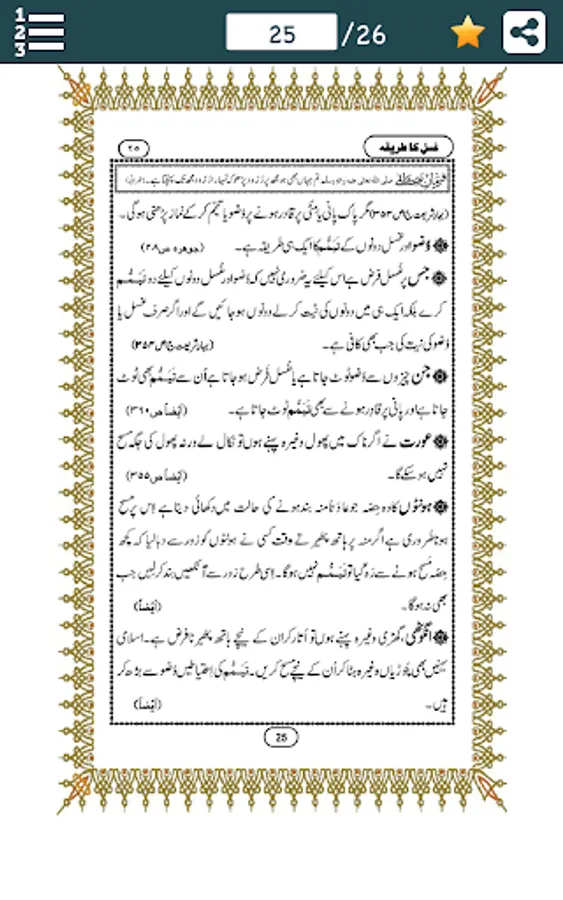 1
2
3
25 /26
غسل کا طریقہ
٢٥
فرمانِ مصطفٰے صلی اللہ تعالیٰ علیہ واٰلہٖ وسلم تم جہاں بھی ہو مجھ پر دُرُود پڑھو کہ تمہارا دُرُود مجھ تک پہنچتا ہے۔ (طبرانی)
(بہارِ شریعت ج۱ص۳۵۳) مگر پاک پانی یا مٹّی پر قادر ہونے پر وُضو یا تیمم کر کے نماز پڑھنی ہوگی۔
وُضو اور غسل دونوں کے تَیَمُّم کا ایک ہی طریقہ ہے۔ (جوہرہ ص۲۸)
جس پر غُسل فرض ہے اس کیلئے یہ ضروری نہیں کہ وُضو اور غُسل دونوں کیلئے دو تَیَمُّم
کرے بلکہ ایک ہی میں دونوں کی نیّت کر لے دونوں ہو جائیں گے اور اگر صرف غسل یا
وُضو کی نیت کی جب بھی کافی ہے۔ (بہارِ شریعت ج۱ص۳۵۴)
جن چیزوں سے وُضو ٹوٹ جاتا ہے یا غُسل فرض ہو جاتا ہے اُن سے تَیَمُّم بھی ٹوٹ
جاتا ہے اور پانی پر قادر ہونے سے بھی تَیَمُّم ٹوٹ جاتا ہے۔ (اَیضاً ص۳۶۰)
عورت نے اگر ناک میں پھول وغیرہ پہنے ہوں تو نکال لے ورنہ پھول کی جگہ مسح
نہیں ہو سکے گا۔ (اَیضاً ص۳۵۵)
ہونٹوں کا وہ حِصّہ جو عادَتاً منہ بند ہونے کی حالت میں دکھائی دیتا ہے اِس پر مسح
ہونا ضَروری ہے اگر منہ پر ہاتھ پھیرتے وقت کسی نے ہونٹوں کو زور سے دبا لیا کہ کچھ
حِصّہ مسح ہونے سے رَہ گیا تو تَیَمُّم نہیں ہوگا۔ اِسی طرح زور سے آنکھیں بند کر لیں جب
بھی نہ ہوگا۔ (اَیضاً)
انگوٹھی، گھڑی وغیرہ پہنے ہوں تو اُتار کر ان کے نیچے ہاتھ پھیرنا فرض ہے۔ اسلامی
بہنیں بھی چُوڑیاں وغیرہ ہٹا کر اُن کے نیچے مسح کریں۔ تَیَمُّم کی اِحتیاطیں وُضو سے بڑھ کر
ہیں۔ (اَیضاً)
25